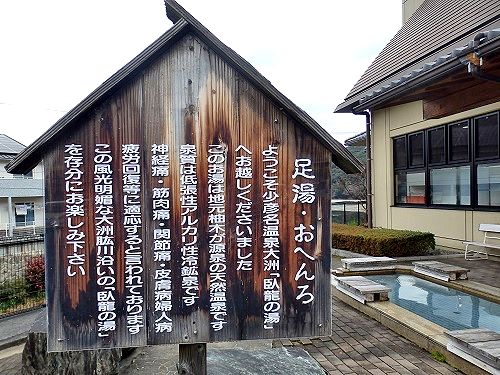 足湯・おへんろ
ようこそ少彦名温泉大洲「臥龍の湯」
へお越しくださいました
このお湯は地元柚木が源泉の天然温泉です
泉質は低張性アルカリ性冷鉱泉です
神経痛・筋肉痛・関節痛・皮膚病婦人病
疲労回復等に適応すると言われております
この風光明媚な大洲肱川沿いの「臥龍の湯」
を存分にお楽しみ下さい